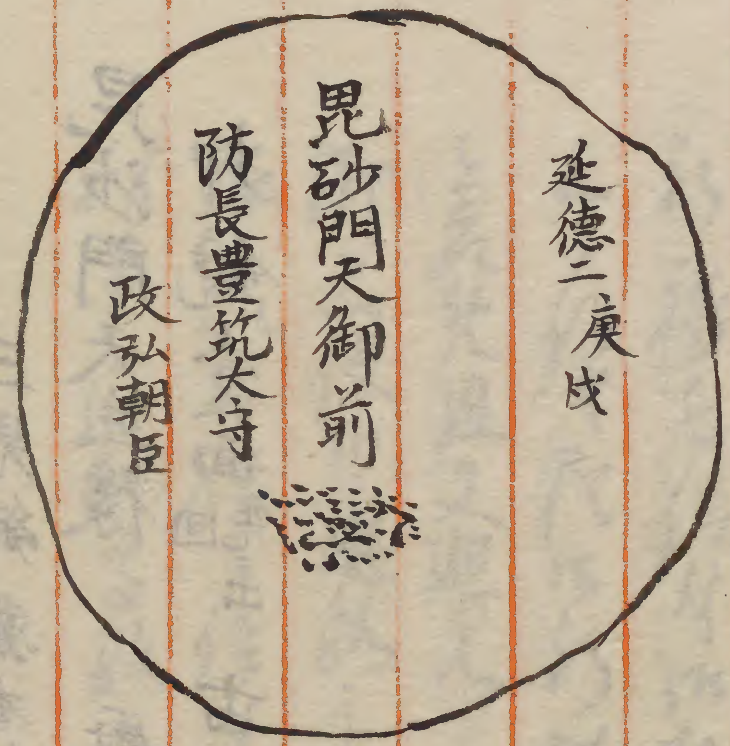 延德二庚戌
毘砂門天御前
防長豊筑大守
政弘朝臣